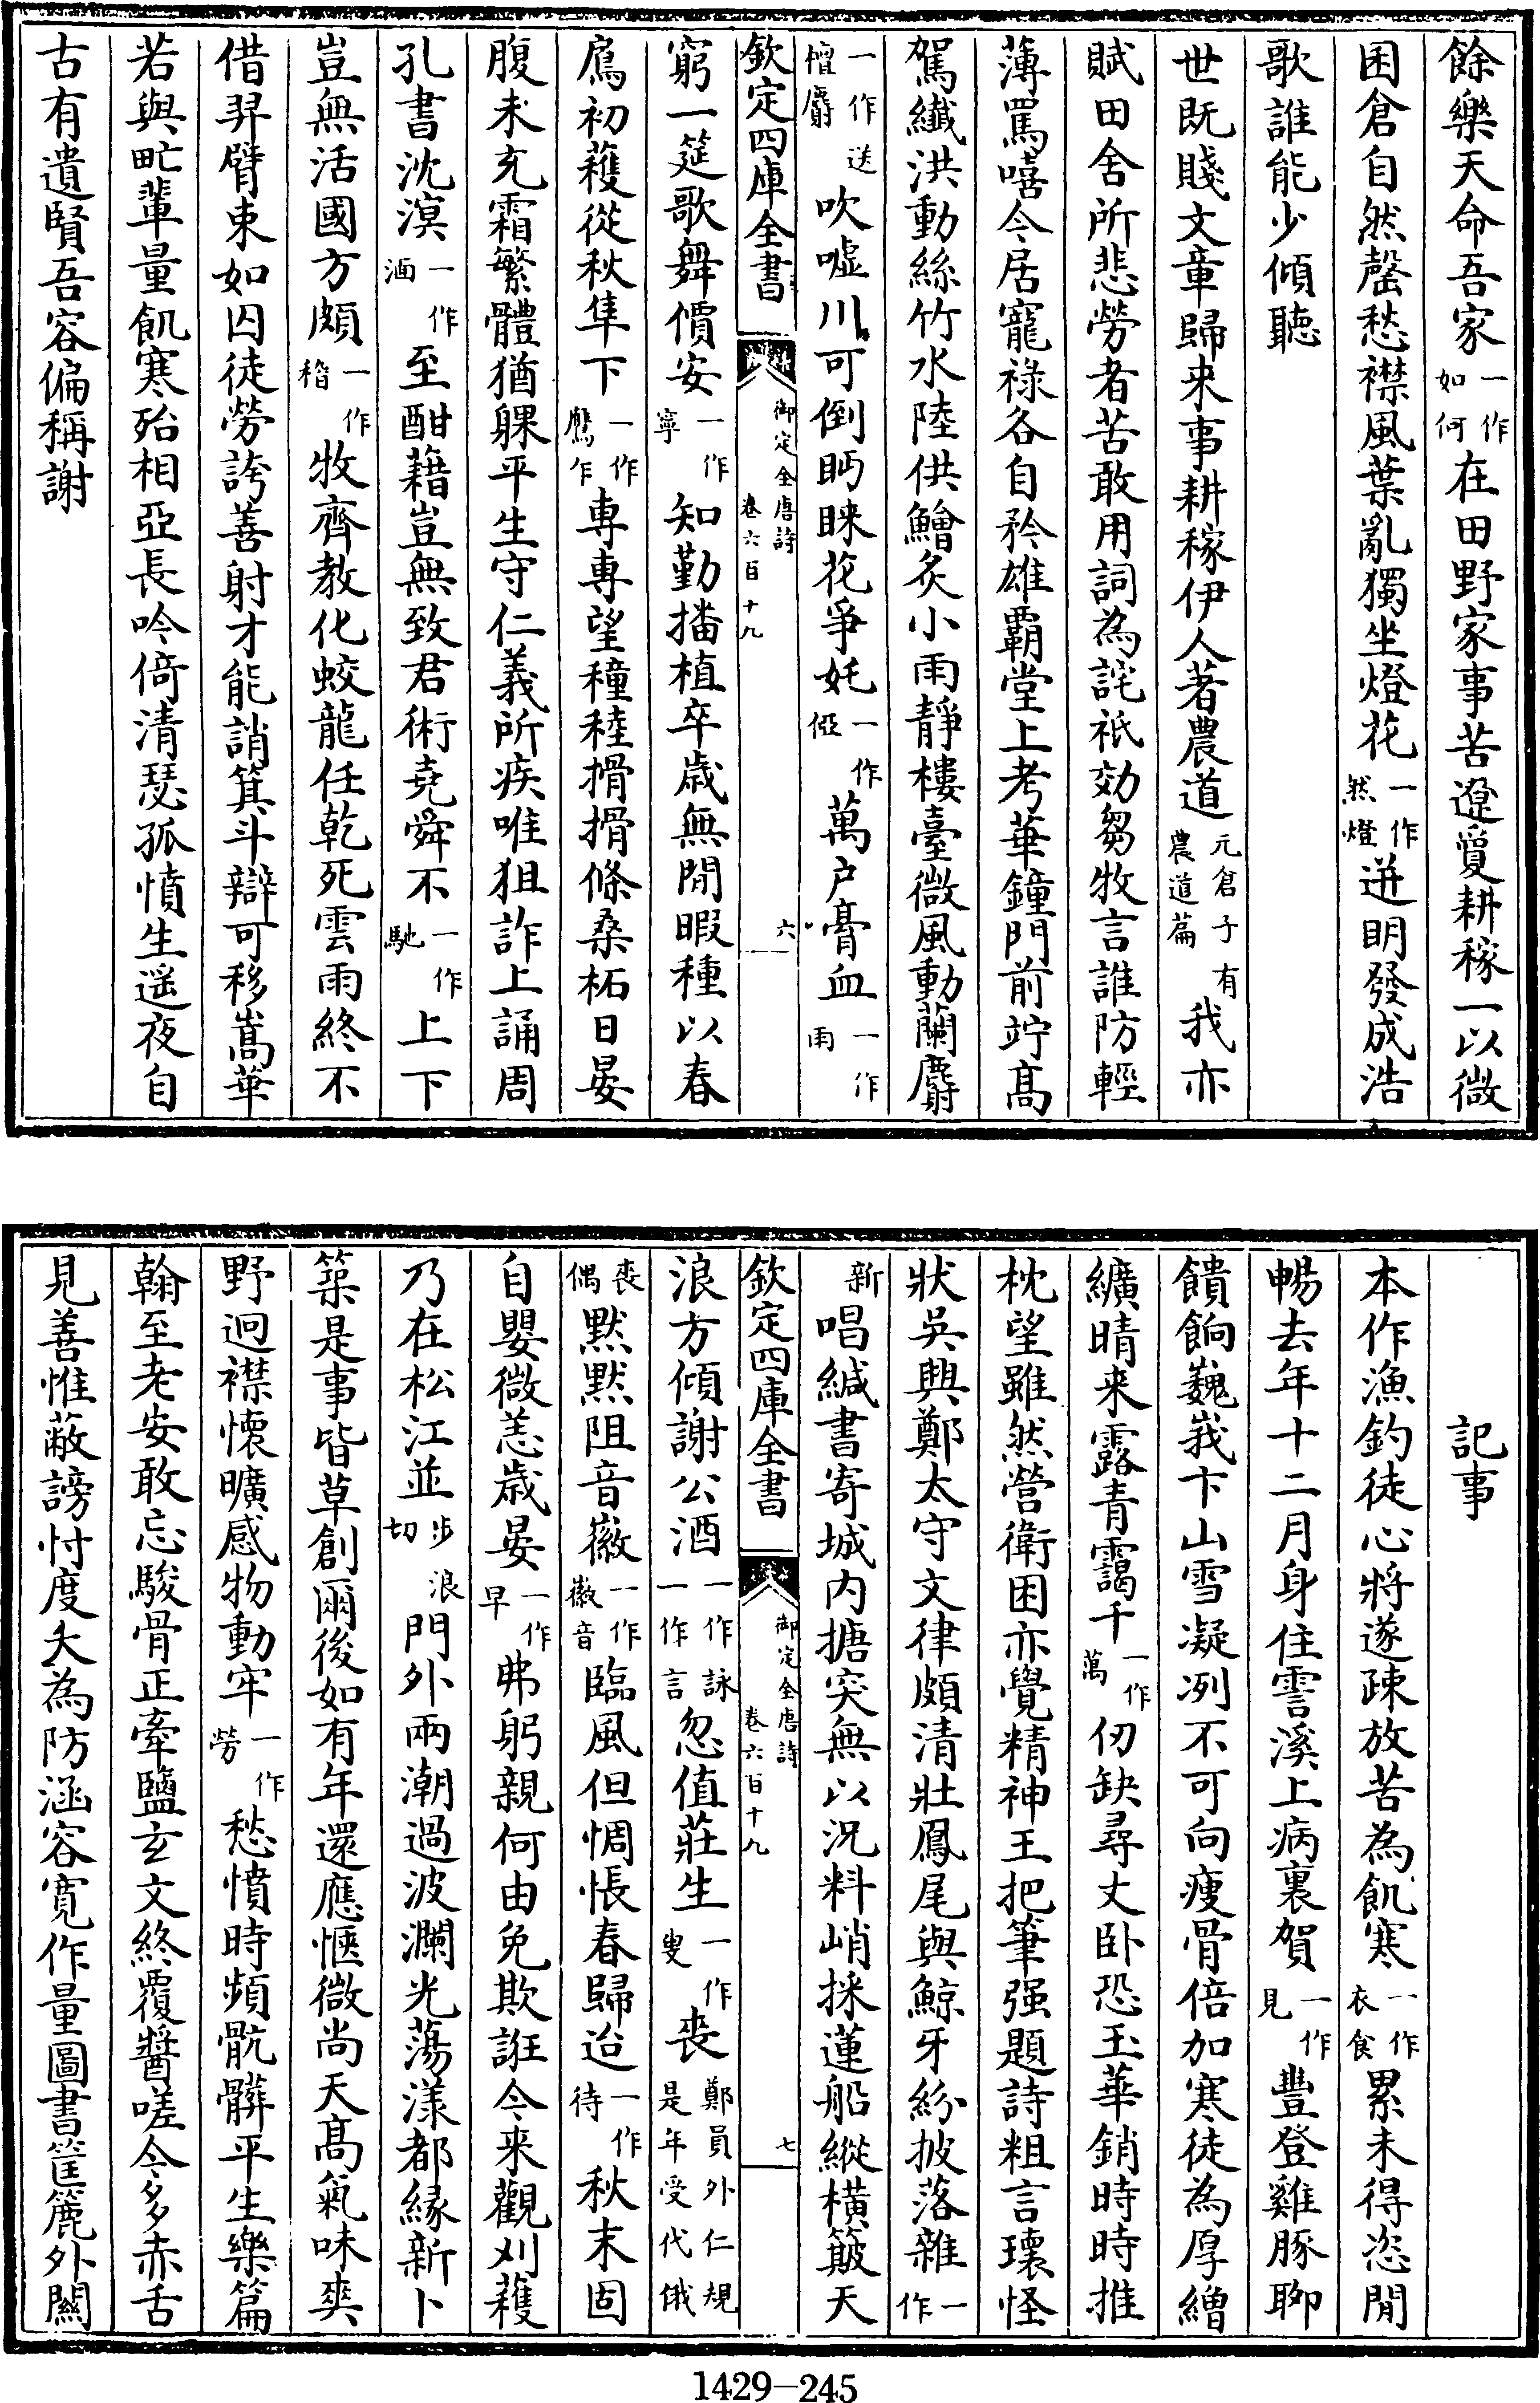 餘樂天命吾家一作如何在田野家事苦遼夐耕稼一以微
困倉自然罄愁襟風葉亂獨坐燈花一作然燈迸明發成浩
歌誰能少傾聽
世既賤文章歸来事耕稼伊人著農道元倉子有農道篇我亦
賦田舍所悲勞者苦敢用詞為詫祇効芻牧言誰防輕
薄罵嘻今居寵祿各自矜雄霸堂上考華鐘門前竚髙
駕纎洪動絲竹水陸供鱠炙小雨靜樓臺微風動蘭麝
一作送檀麝吹噓川可倒眄睞花爭奼一作俹萬户膏血一作雨
欽定四庫全書 御定全唐詩卷六百十九 六
窮一筵歌舞價安一作寧知勤播植卒歲無閒暇種以春
鳸初穫從秋隼下一作鷹乍專專望穜稑搰搰條桑柘日晏
腹未充霜繁體猶躶平生守仁義所疾唯狙詐上誦周
孔書沈溟一作湎至酣藉豈無致君術堯舜不一作馳上下
豈無活國方頗一作稽牧齊教化蛟龍任乾死雲雨終不
借羿臂束如囚徒勞誇善射才能誚箕斗辯可移嵩華
若與甿輩量飢寒殆相亞長吟倚清瑟孤憤生遥夜自
古有遺賢吾容偏稱謝
記事
本作漁釣徒心將遂疎放苦為飢寒一作衣食累未得恣閒
暢去年十二月身住霅溪上病裏賀一作見豐登雞豚聊
饋餉巍峩卞山雪凝冽不可向瘦骨倍加寒徒為厚繒
纊晴来露青靄千一作萬仞缺尋丈卧恐玉華銷時時推
枕望雖然營衛困亦覺精神王把筆强題詩粗言瓌怪
狀吳興鄭太守文律頗清壯鳳尾與鯨牙紛披落雜一作
新唱緘書寄城内搪突無以況料峭採蓮船縱橫簸天
欽定四庫全書 御定全唐詩卷六百十九 七
浪方傾謝公酒一作詠一作言忽值莊生一作叟喪鄭員外仁規是年受代俄
喪偶默默阻音徽一作徽音臨風但惆悵春歸迨一作待秋末固
自嬰微恙歲晏一作早弗躬親何由免欺誑今来觀刈穫
乃在松江並步浪切門外兩潮過波瀾光蕩漾都緣新卜
築是事皆草創爾後如有年還應愜微尚天髙氣味爽
野迥襟懷曠感物動牢一作勞愁憤時頻骯髒平生樂篇
翰至老安敢忘駿骨正牽鹽玄文終覆醬嗟今多赤舌
見善惟蔽謗忖度大為防涵容寛作量圖書筐簏外關
1429-245